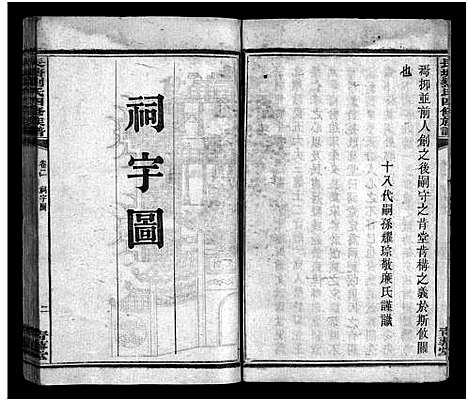 焉抑並前人創之後嗣守之肯堂肯構之義於斯攸關
也
十八代嗣孫耀琮敬廉氏謹識
祠宇圖
卷之 祠宇圖
二
青藜堂